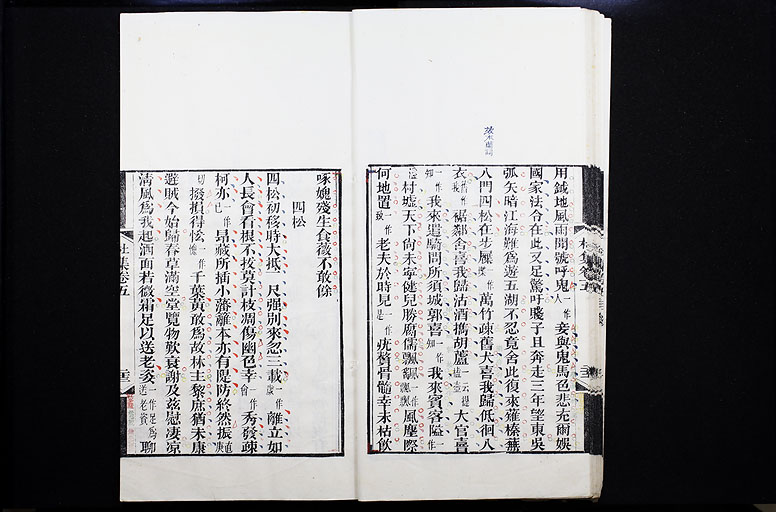 用鉞地風雨聞號呼鬼一作人妾與鬼馬色悲充爾娛
國家法令在此又足驚吁賤子且奔走三年望東吳
弧矢暗江海難爲遊五湖不忍竟舍此復來薙榛蕪
入門四松在步屧一作萬竹疎舊犬喜我歸低徊入
衣一作我裾鄰舍喜我歸沽酒攜胡蘆一云提榼壺大官喜
一作知我來遣騎問所須城郭喜一作知我來賓客隘一作
溢村墟天下尚未寧健兒勝腐儒飄颻一作飄飄風塵際
何地置一作致老夫於時見一作是疣贅骨髓幸未枯飲
杜集卷五
啄媿殘生食薇不敢餘
四松
四松初移時大抵三尺强別來忽三載一作歲離立如
人長會看根不拔莫計枝凋傷幽色幸一作會秀發疎
柯亦一作已昂藏所插小藩籬本亦有隄防終然振直庚
切撥損得恡一作愧千葉黃敢爲故林主黎庶猶未康
避賊今始歸春草滿空堂覽物歎衰謝及茲慰凄凉
清風爲我起洒面若微霜足以送老姿一作足爲送老資聊
杜集卷五